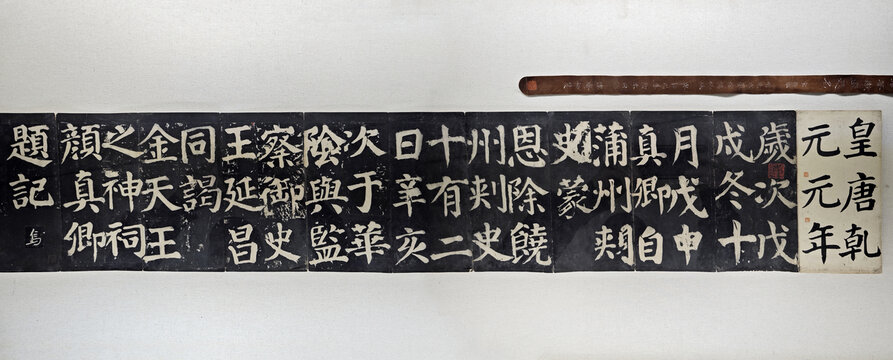 皇唐乾
元元年
歲次戊
戌冬十
月戊申
真卿自
蒲州刺
史蒙
恩除饒
州刺史
十有二
日辛亥
次于華
陰與監
察御史
王延昌
同謁
金天王
之神祠
顏真卿
題記